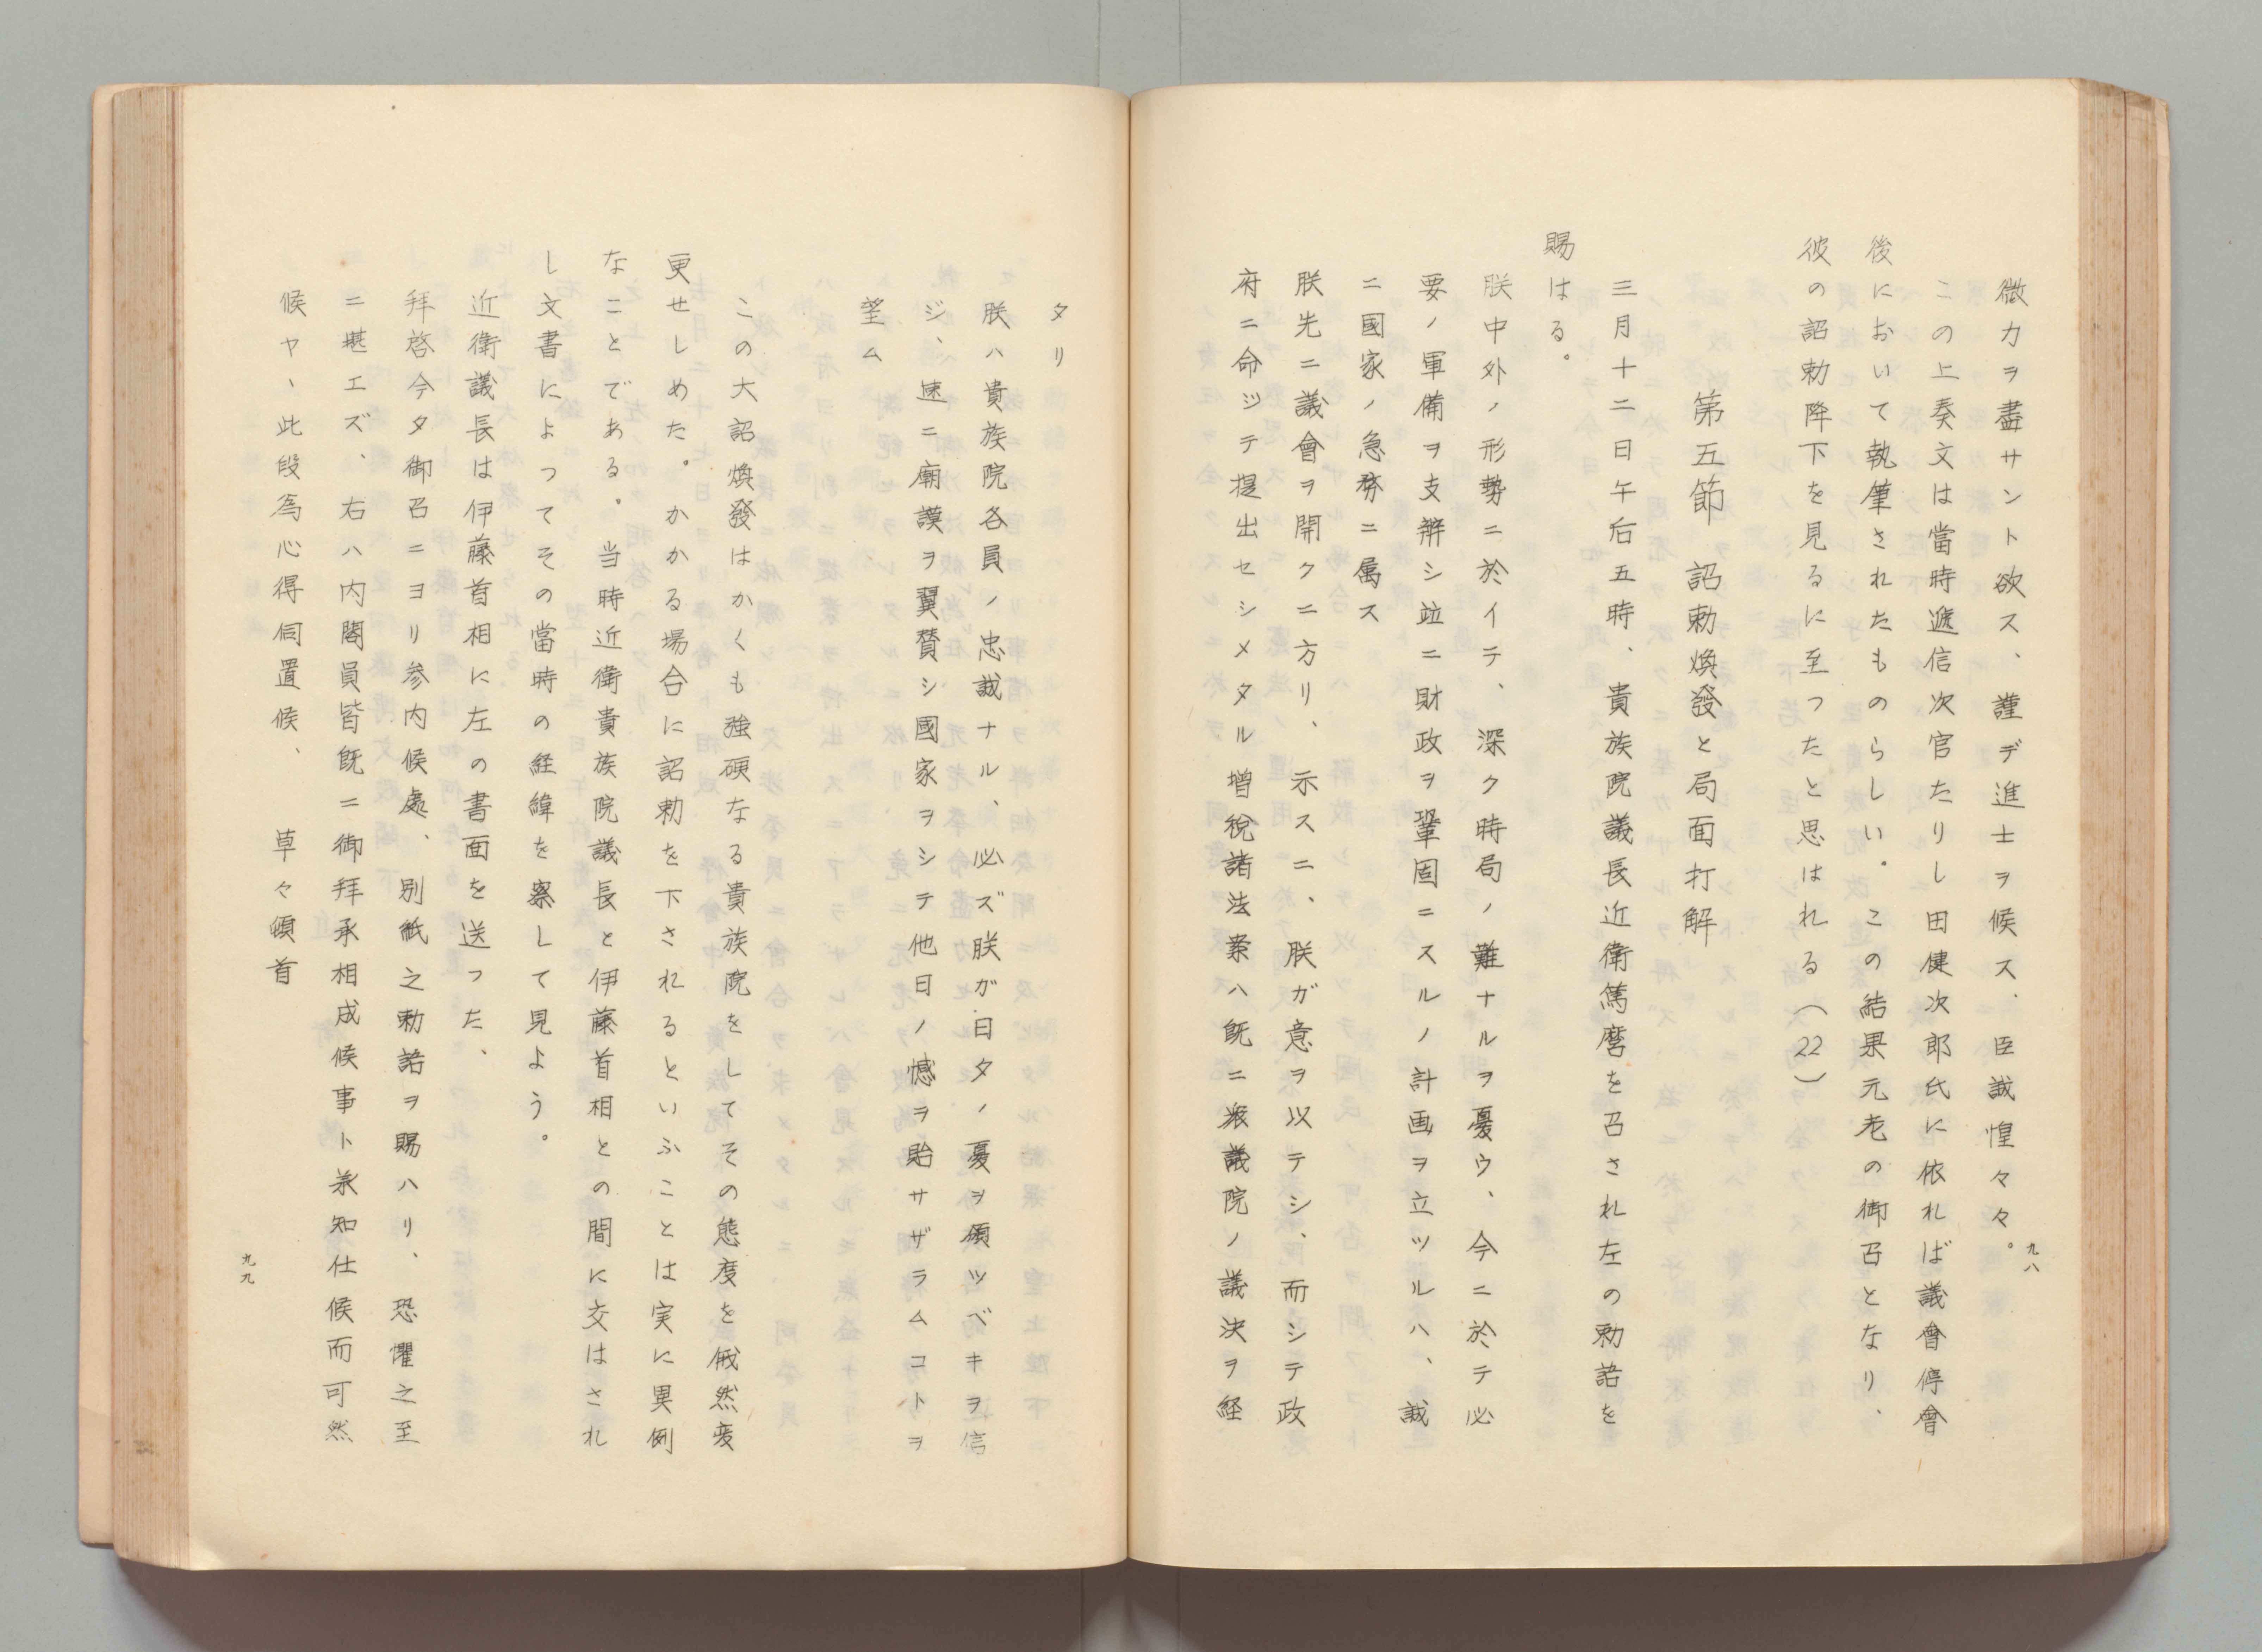 微力ヲ盡サント欲ス、謹デ進士ヲ候ス、臣誠惶々々。
この上奏文は當時遞信次官たりし田健次郎氏に依れば議會停會
後において執筆されたものらしい。この結果元老の御召となり、
彼の詔勅降下を見るに至つたと思はれる（22）
第五節　詔勅煥發と局面打解
三月十二日午后五時、貴族院議長近衛篤麿を召され左の勅語を
賜はる。
朕中外ノ形勢ニ於イテ、深ク時局ノ難ナルヲ憂ウ、今ニ於テ必
要ノ軍備ヲ支辨シ竝ニ財政ヲ鞏固ニスルノ計画ヲ立ツルハ、誠
ニ國家ノ急務ニ属ス
朕先ニ議會ヲ開クニ方リ、示スニ、朕ガ意ヲ以テシ、而シテ政
府ニ命ジテ提出セシメタル増税諸法案ハ既ニ衆議院ノ議決ヲ経
九八
タリ
朕ハ貴族院各員ノ忠誠ナル、必ズ朕ガ日夕ノ憂ヲ頒ツベキヲ信
ジ、速ニ廟謨ヲ翼賛シ國家ヲシテ他日ノ憾ヲ貽サザラムコトヲ
望ム
この大詔煥發はかくも強硬なる貴族院をしてその態度を俄然変
更せしめた。かかる場合に詔勅を下されるといふことは実に異例
なことである。当時近衛貴族院議長と伊藤首相との間に交はされ
し文書によつてその當時の経緯を察して見よう。
近衛議長は伊藤首相に左の書面を送つた、
拝啓今夕御召ニヨリ参内候處、別紙之勅語ヲ賜ハリ、恐懼之至
ニ堪エズ、右ハ内閣員皆既ニ御拝承相成候事ト承知仕候而可然
候ヤ、此段為心得伺置候、　草々頓首
九九